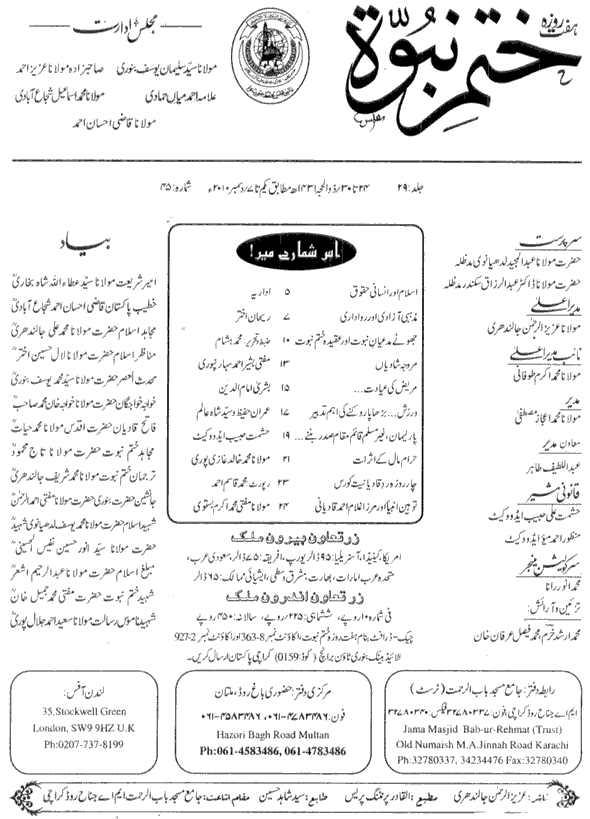 ہفت روزہ
ختم نبوۃ
مجلس ادارت
مولانا سیّد سلیمان یوسف بنوری صاحبزادہ مولانا عزیز احمد
علامہ احمد میاں حمادی مولانا محمد اسماعیل شجاع آبادی
مولانا قاضی احسان احمد
جلد: ۲۹ ۲۴ تا ۳۰ ؍ذوالحجہ ۱۴۳۱ھ مطابق یکم تا ۷؍دسمبر ۲۰۱۰ء شمارہ: ۴۵
سرپرست
حضرت مولانا عبدالمجید لدھیانوی مدظلہ
حضرت مولانا ڈاکٹر عبدالرزاق سکندر مدظلہ
مدیر اعلیٰ
مولانا عزیز الرحمٰن جالندھری
نائب مدیر اعلیٰ
مولانا محمد اکرم طوفانی
مدیر
مولانا محمد اعجاز مصطفی
معاون مدیر
عبداللطیف طاہر
قانونی مشیر
حشمت علی حبیب ایڈووکیٹ
منظور احمد میو ایڈووکیٹ
سرکولیشن منیجر
محمد انور رانا
تزئین و آرائش:
محمد ارشد خرم، محمد فیصل عرفان خان
اس شمارے میں!
اسلام اور انسانی حقوق ۵ اداریہ
مذہبی آزادی اور رواداری ۷ ریحان اختر
جھوٹے مدعیان نبوت اور عقیدہ ختم نبوت ۱۰ ضبط تحریر: محمد ہشام
مروجہ شادیاں ۱۳ مفتی بشیر احمد سہارنپوری
مریض کی عیادت... ۱۵ بشریٰ امام الدین
ورزش... بڑھاپا روکنے کی اہم تدبیر ۱۷ عمران حفیظ و سیّد شاہ عالم
پارلیمان، غیر مسلم قائم مقام صدر بنے... ۱۹ حشمت حبیب ایڈووکیٹ
حرام مال کے اثرات ۲۱ مولانا محمد خالد غازی پوری
چار روزہ رد قادیانیت کورس ۲۳ رپورٹ: محمد قاسم احمد
توہین انبیا اور مرزا غلام احمد قادیانی ۲۴ مفتی محمد اکرم بستوی
زر تعاون بیرون ملک
امریکا، کینیڈا، آسٹریلیا: ۹۵ڈالر یورپ، افریقہ: ۷۵ڈالر، سعودی عرب،
متحدہ عرب امارات، بھارت، مشرق وسطیٰ، ایشیائی ممالک: ۶۵ڈالر
زر تعاون اندرون ملک
فی شمارہ ۱۰ روپے، ششماہی: ۲۲۵روپے، سالانہ: ۴۵۰روپے
چیک-ڈرافٹ بنام ہفت روزہ ختم نبوت، اکاؤنٹ نمبر 8-363 اور اکاؤنٹ نمبر 2-927
الائیڈ بینک بنوری ٹاؤن برانچ (کوڈ:0159) کراچی پاکستان ارسال کریں۔
بیاد
امیر شریعت مولانا سیّد عطاء اللہ شاہ بخاریؒ
خطیب پاکستان قاضی احسان احمد شجاع آبادیؒ
مجاہد اسلام حضرت مولانا محمد علی جالندھریؒ
مناظر اسلام حضرت مولانا لال حسین اخترؒ
محدث العصر حضرت مولانا سیّد محمد یوسف بنوریؒ
خواجہ خواجگان حضرت مولانا خواجہ خان محمد صاحبؒ
فاتح قادیان حضرت اقدس مولانا محمد حیاتؒ
مجاہد ختم نبوت حضرت مولانا تاج محمودؒ
ترجمان ختم نبوت حضرت مولانا محمد شریف جالندھریؒ
جانشین حضرت بنوری حضرت مولانا مفتی احمد الرحمٰنؒ
شہید اسلام حضرت مولانا محمد یوسف لدھیانوی شہیدؒ
حضرت مولانا سیّد انور حسین نفیس الحسینیؒ
مبلغ اسلام حضرت مولانا عبدالرحیم اشعرؒ
شہید ختم نبوت حضرت مفتی محمد جمیل خانؒ
شہید ناموس رسالت مولانا سعید احمد جلال پوریؒ
رابطہ دفتر: جامع مسجد باب الرحمت (ٹرسٹ)
ایم اے جناح روڈ کراچی، فون: ۳۲۷۸۰۳۳۷ فیکس: ۳۲۷۸۰۳۴۰
Jama Masjid Bab-ur-Rehmat (Trust)
Old Numaish M.A.Jinnah Road Karachi
Ph: 32780337, 34234476 Fax:32780340
مرکزی دفتر: حضوری باغ روڈ، ملتان
فون: ۰۶۱-۴۷۸۳۴۸۶، ۰۶۱-۴۵۸۳۴۸۶
Hazori Bagh Road Multan
Ph:061-4583486, 061-4783486
لندن آفس:
35,Stockwell Green
London, SW9 9HZ U.K
Ph:0207-737-8199
ناشر: عزیز الرحمٰن جالندھری مطبع: القادر پرنٹنگ پریس طابع: سیّد شاہد حسین مقام اشاعت: جامع مسجد باب الرحمت ایم اے جناح روڈ کراچی